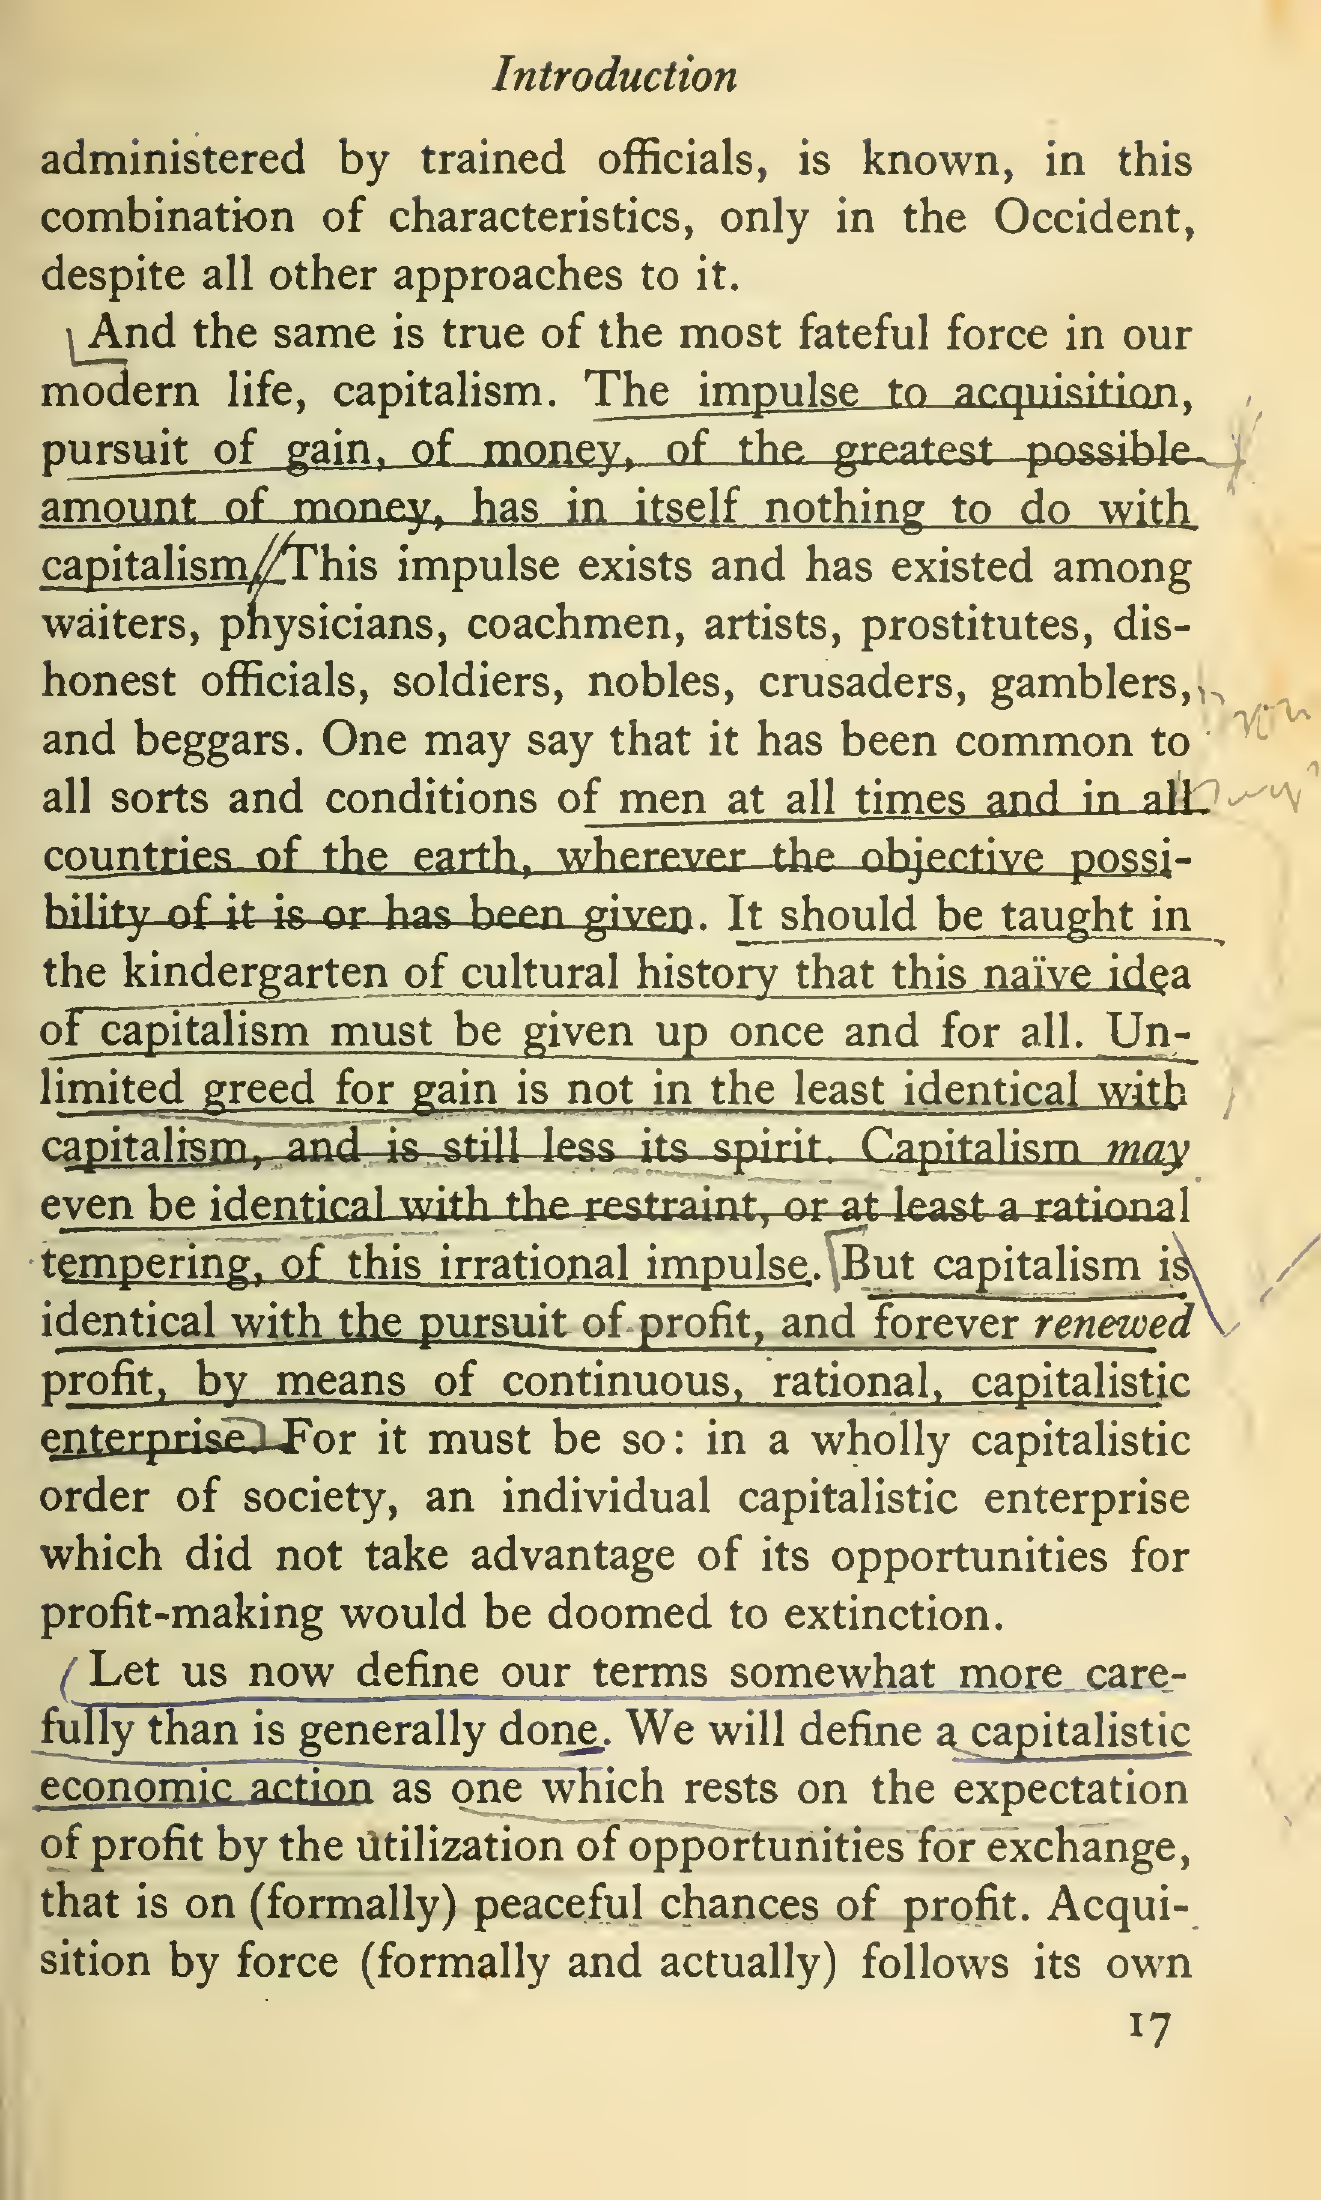 Introduction
administered by trained officials, is known, in this
combination of characteristics, only in the Occident,
despite all other approaches to it.
And the same is true of the most fateful force in our
modern life, capitalism. The impulse to acquisition,
pursuit of gain, of money, of the greatest possible
amount of money, has in itself nothing to do with
capitalism. This impulse exists and has existed among
waiters, physicians, coachmen, artists, prostitutes, dis-
honest officials, soldiers, nobles, crusaders, gamblers,
and beggars. One may say that it has been common to
all sorts and conditions of men at all times and in all
countries of the earth, wherever the objective possi-
bility of it is or has been given. It should be taught in
the kindergarten of cultural history that this naïve idea
of capitalism must be given up once and for all. Un-
limited greed for gain is not in the least identical with
capitalism, and is still less its spirit. Capitalism may
even be identical with the restraint, or at least a rational
tempering, of this irrational impulse. But capitalism is
identical with the pursuit of profit, and forever renewed
profit, by means of continuous, rational, capitalistic
enterprise. For it must be so: in a wholly capitalistic
order of society, an individual capitalistic enterprise
which did not take advantage of its opportunities for
profit-making would be doomed to extinction.
Let us now define our terms somewhat more care-
fully than is generally done. We will define a capitalistic
economic action as one which rests on the expectation
of profit by the utilization of opportunities for exchange,
that is on (formally) peaceful chances of profit. Acqui-
sition by force (formally and actually) follows its own
17